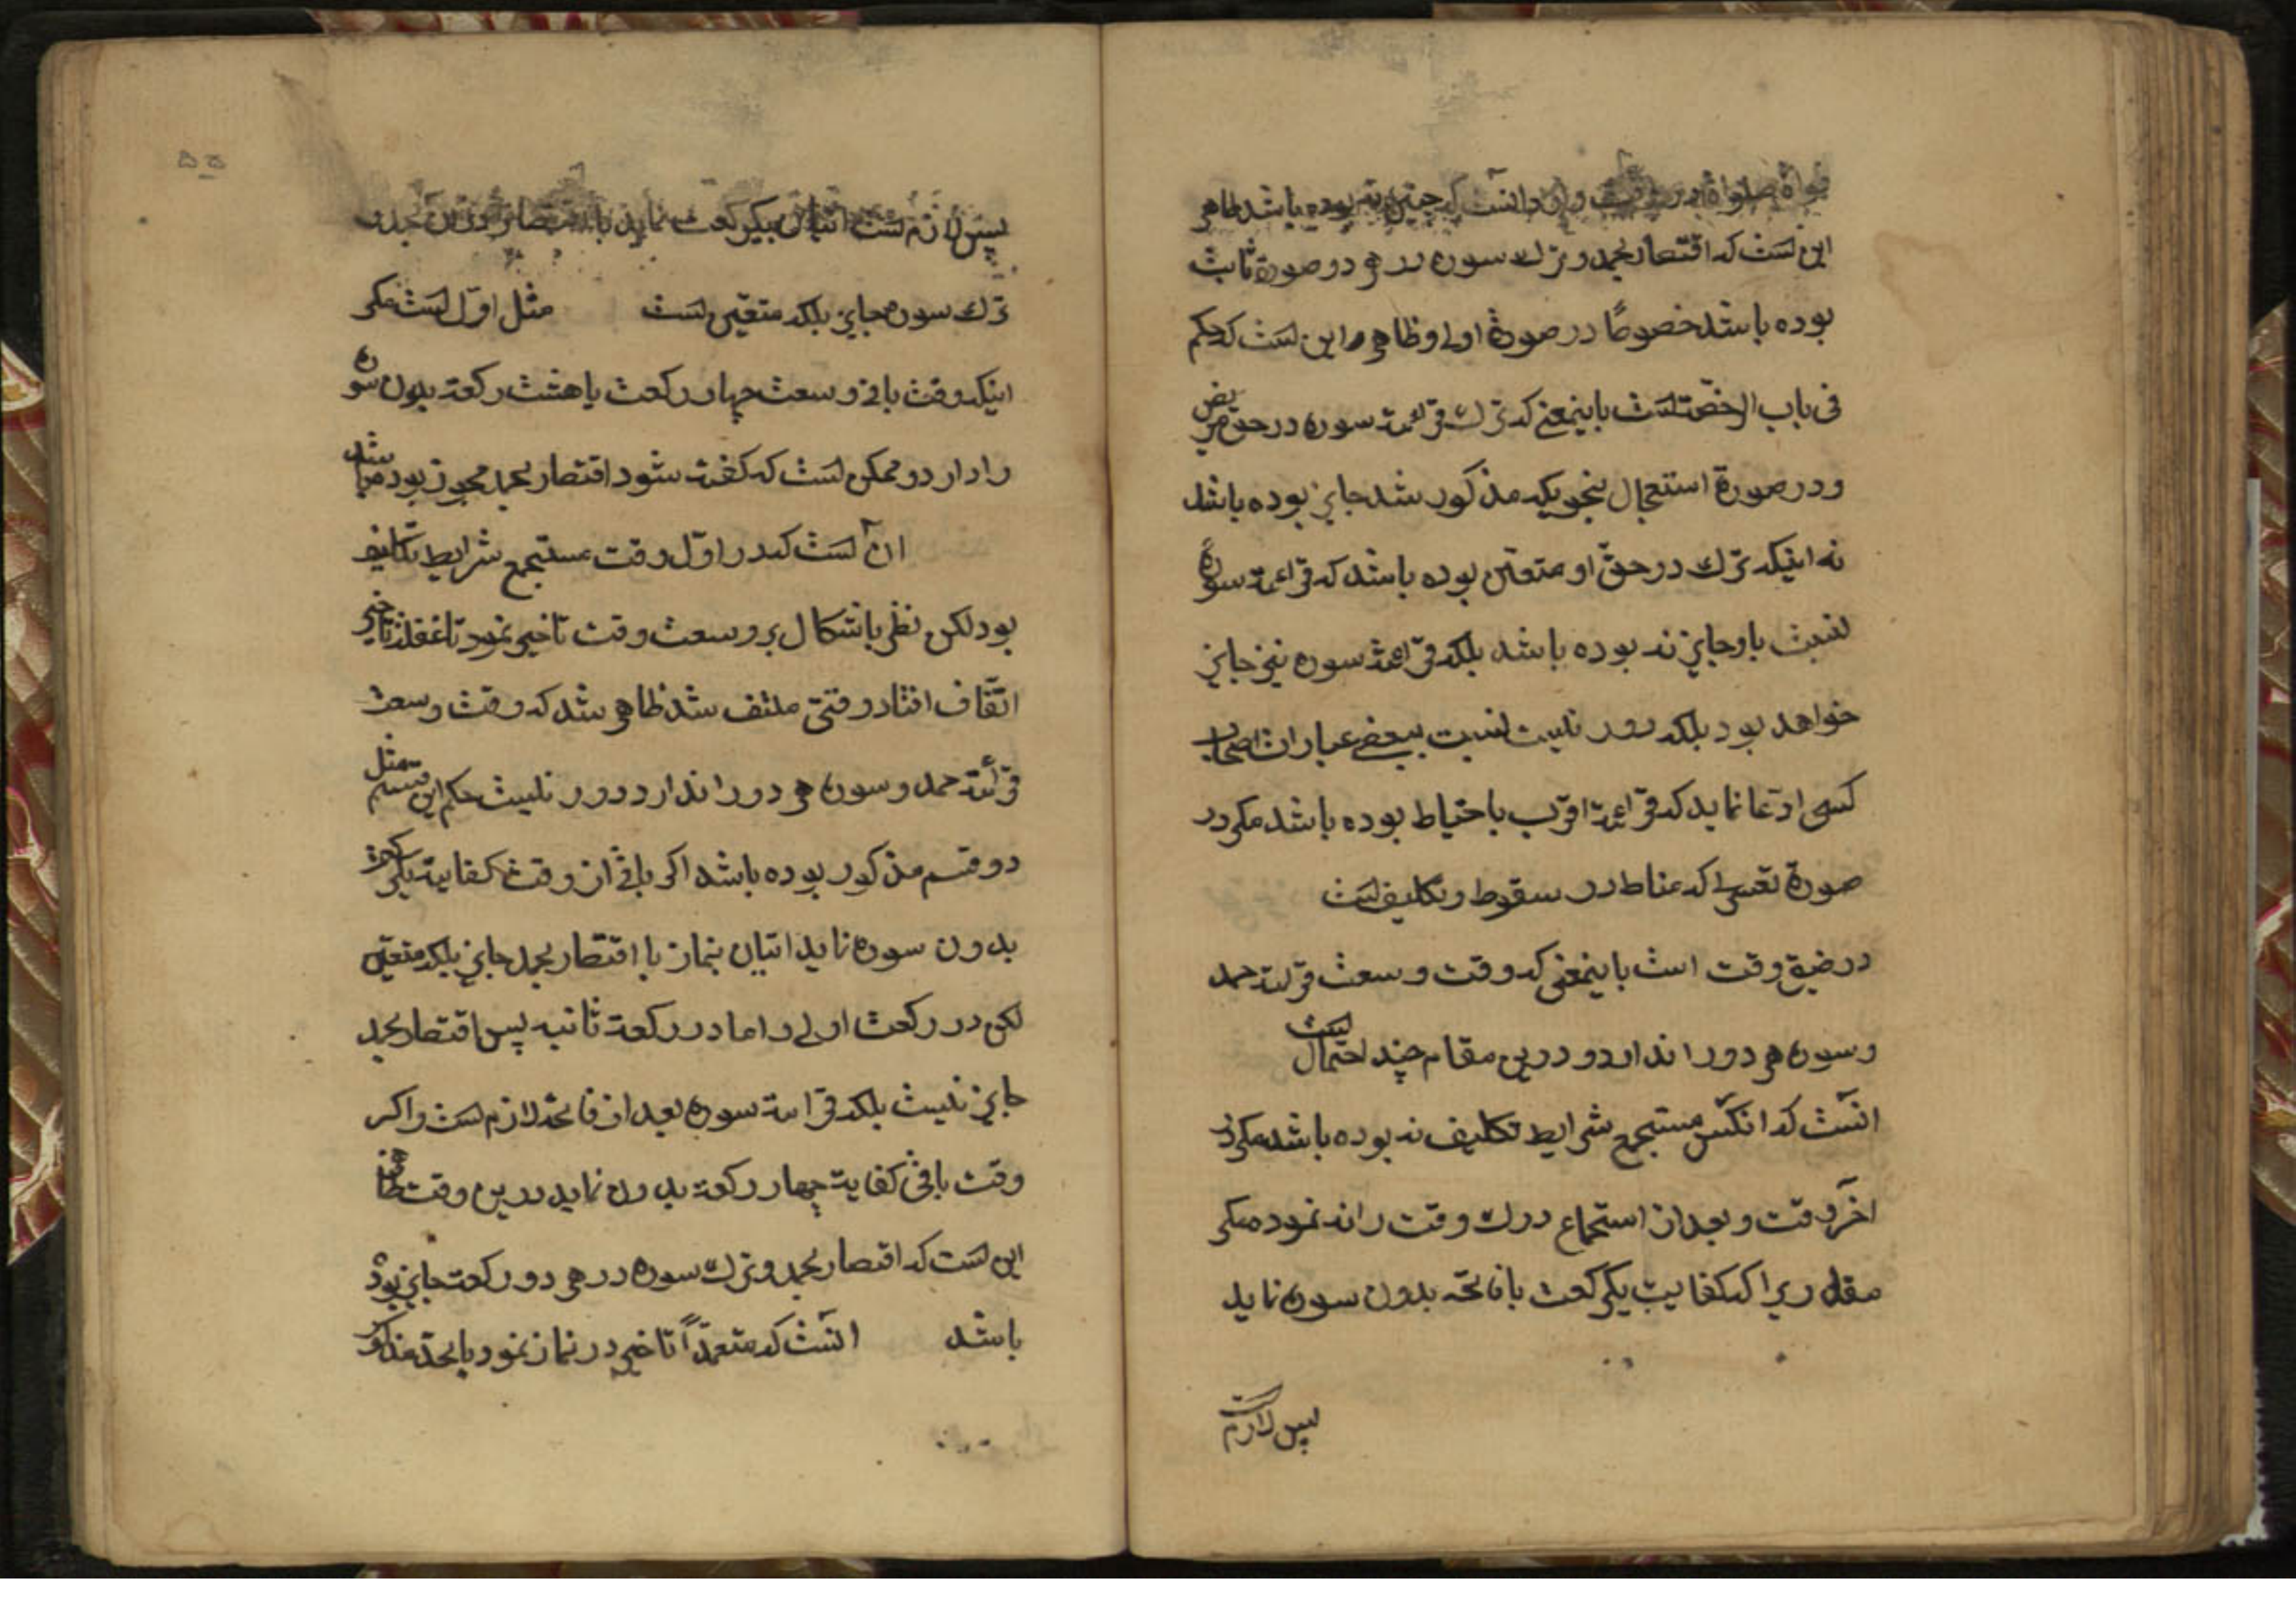 این است که اقتصار بحمد و ترک سوره در هر دو صورة ثابت
بوده باشد خصوصًا در صورة اولی و ظاهر این است که حکم
فی باب الرخصة است باینمعنی که ترک قرائت سوره در حق مریض
و در صورة استعجال بنحویکه مذکور شد جایز بوده باشد
نه اینکه ترک در حق او متعین بوده باشد که قرائت سورة
نسبت باو جایز نه بوده باشد بلکه قرائت سوره نیز جایز
خواهد بود بلکه دور نیست نسبت ببعضی عبارات اصحاب
کسی ادعا نماید که قرائت اقرب باحتیاط بوده باشد مکر در
صورة که مناط در سقوط و تکلیف است
در ضیق وقت است باینمعنی که وقت وسعت قرائت حمد
و سوره هر دو را ندارد و درین مقام چند احتمال است
آنست که آنکس مستجمع شرایط تکلیف نه بوده باشد مکر در
آخر وقت و بعد از استجماع درک وقت را نه نموده مکر
مقداریرا که کفایت یکرکعت با فاتحه بدون سوره نماید
پس لازم است
۵۵
پس لازم است اتیان بیکرکعت نماید با اقتصار
ترک سوره جایز بلکه متعین است مثل اول است مکر
اینکه وقت باقی وسعت چهار رکعت یا هشت رکعة بدون سوره
را دارد و ممکن است که کفته شود اقتصار بحمد مجوز بوده باشد
آن است که در اول وقت مستجمع شرایط تکلیف
بود لکن نظر باشکال بر وسعت وقت تاخیر نمود تا غفلة تاخیر
اتّفاق افتاد وقتی ملتفت شد ظاهر شد که وقت وسعت
قرائة حمد و سوره هر دو را ندارد دور نیست حکم این قسم مثل
دو قسم مذکور بوده باشد اکر باقی از وقت کفایة یکرکعت
بدون سوره نماید اتیان بنماز با اقتصار بحمد جایز بلکه متعین
لکن در رکعت اولی و اما در رکعة ثانیه پس اقتصار بحمد
جایز نیست بلکه قراءة سوره بعد از فاتحه لازم است و اکر
وقت باقی کفایة چهار رکعة بدون نماید درین وقت ظاهر
این است که اقتصار بحمد و ترک سوره در هر دو رکعت جایز بوده
باشد آنست که متعمدًا تاخیر در نماز نمود تا بحد مذکور